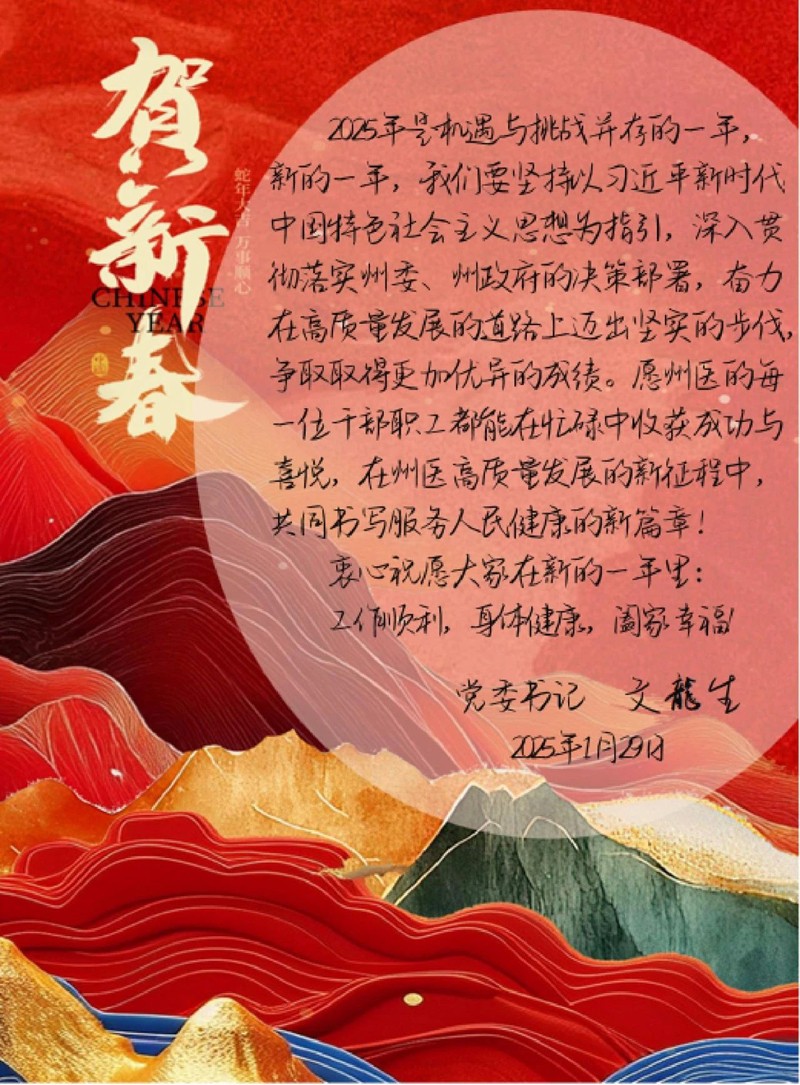 贺新春
蛇年大吉 万事顺心
CHINESE
YEAR
2025年是机遇与挑战并存的一年，
新的一年，我们要坚持以习近平新时代
中国特色社会主义思想为指引，深入贯
彻落实州委、州政府的决策部署，奋力
在高质量发展的道路上迈出坚实的步伐，
争取取得更加优异的成绩。愿州医的每
一位干部职工都能在忙碌中收获成功与
喜悦，在州医高质量发展的新征程中，
共同书写服务人民健康的新篇章！
衷心祝愿大家在新的一年里：
工作顺利，身体健康，阖家幸福！
党委书记 文龍生
2025年1月29日